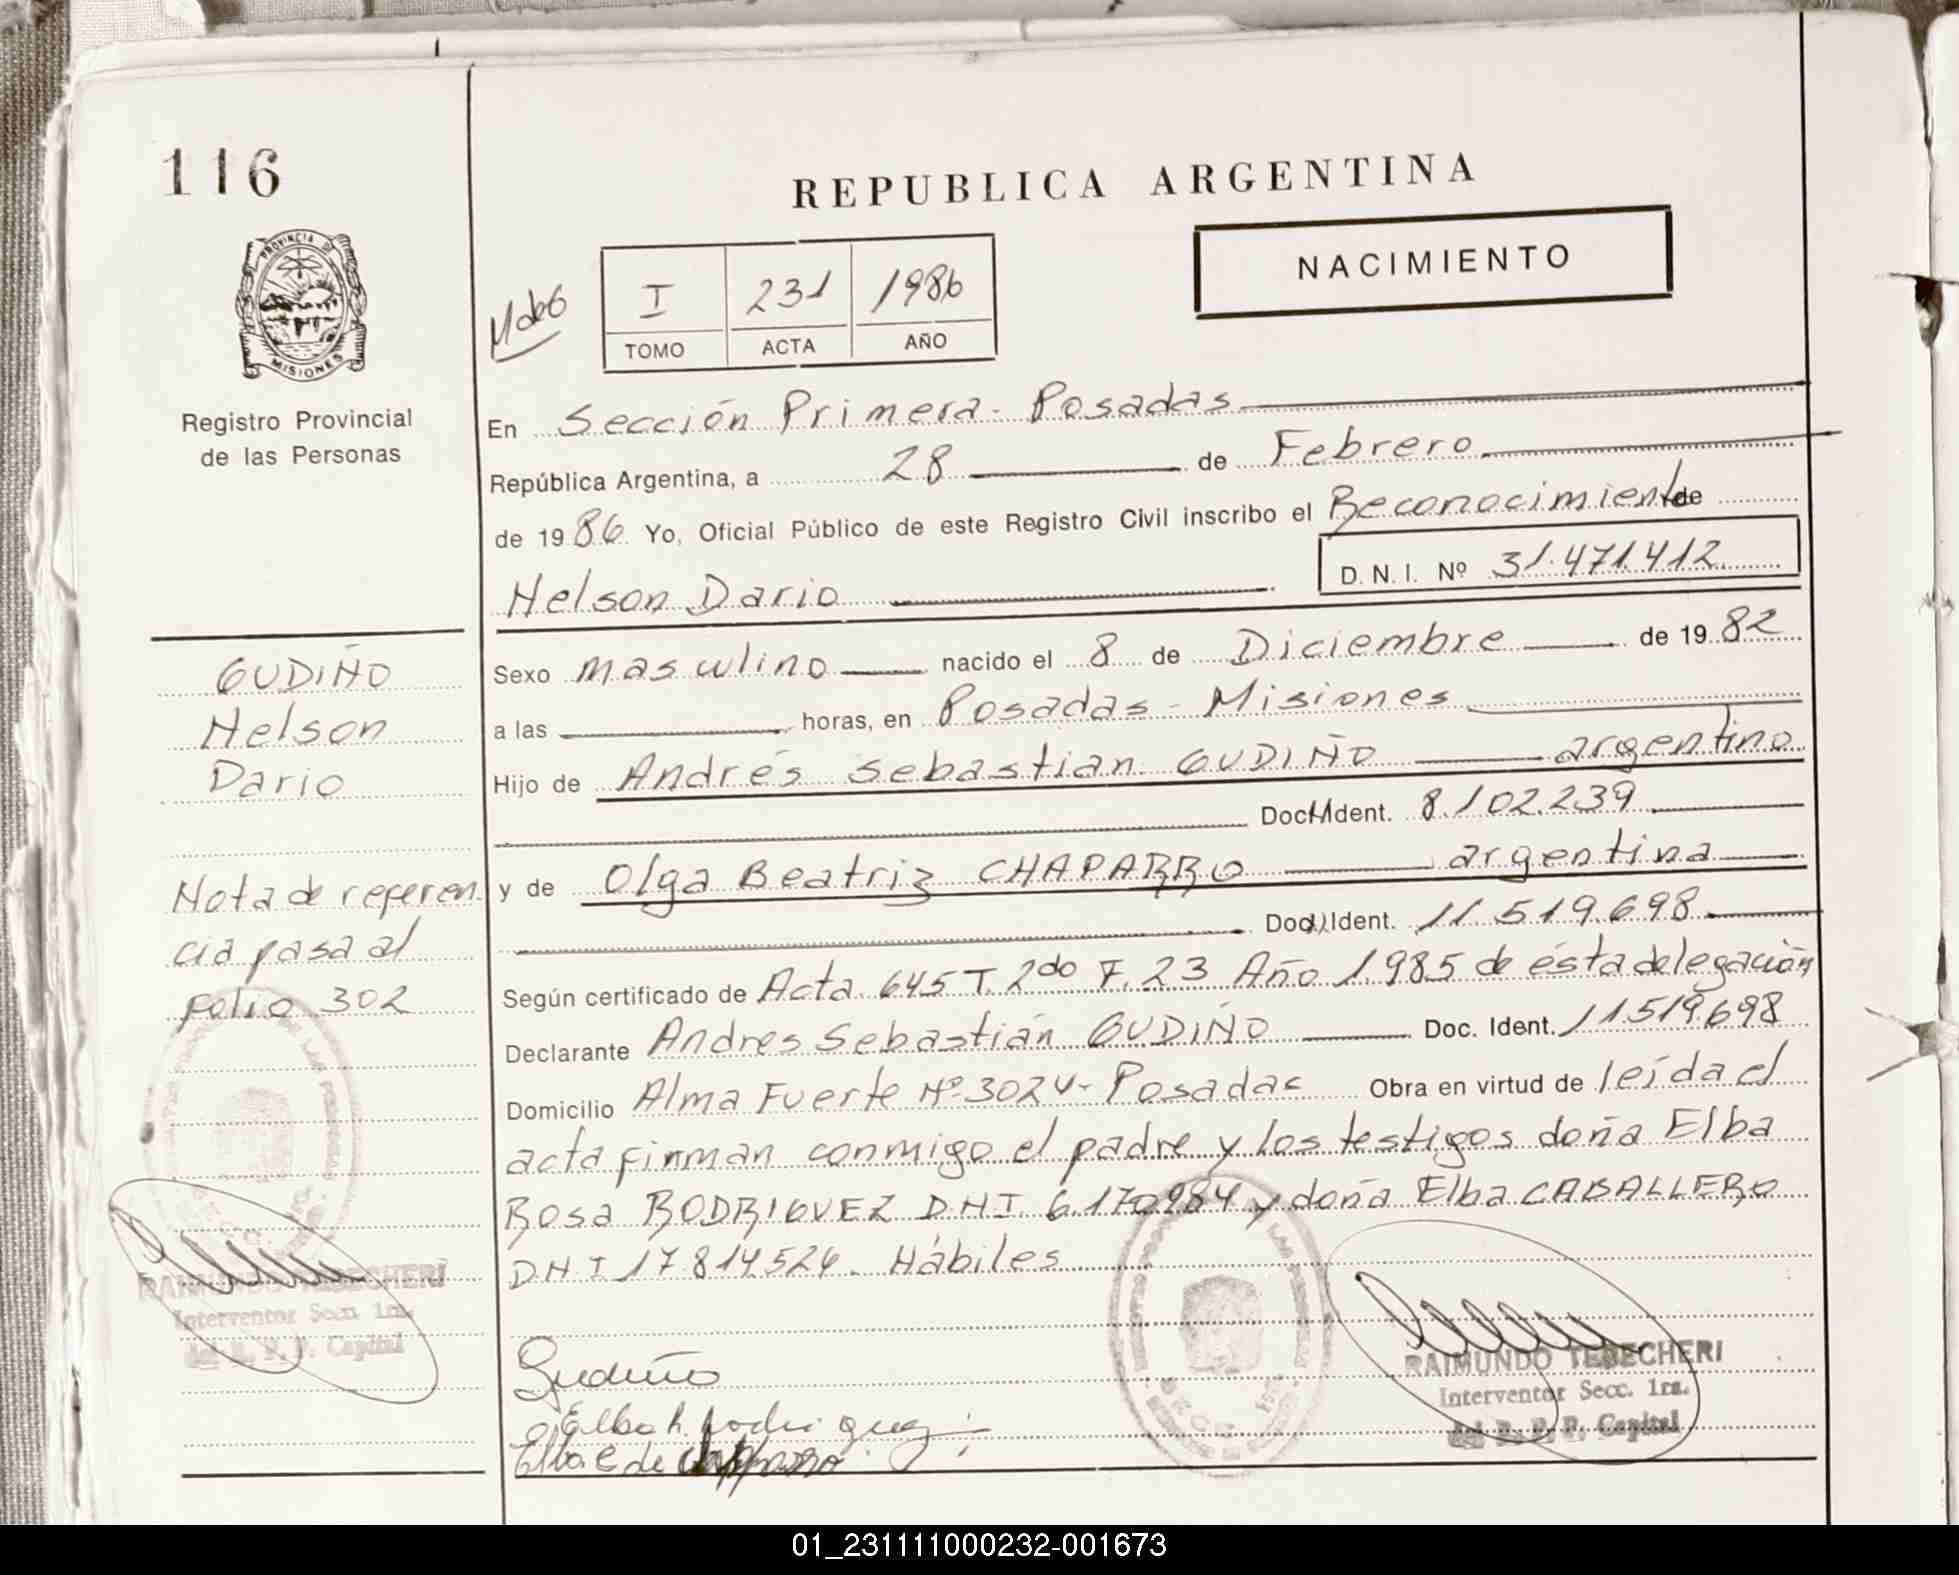 116
REPUBLICA ARGENTINA
NACIMIENTO
PROVINCIA DE
MISIONES
I 231 1986
TOMO ACTA AÑO
Registro Provincial
de las Personas
En Sección Primera - Posadas
República Argentina, a 28 de Febrero
de 1986 Yo, Oficial Público de este Registro Civil inscribo el Reconocimiento de
D. N. I. Nº 31.471.412
Nelson Dario
GUDIÑO
Nelson
Dario
Sexo masculino nacido el 8 de Diciembre de 1982
a las horas, en Posadas - Misiones
Hijo de Andrés Sebastian GUDIÑO argentino
Doc. Ident. 8.102.239
y de Olga Beatriz CHAPARRO argentina
Doc. Ident. 11.519.698
Nota de referen
cia pasa al
folio 302
Según certificado de Acta 645 T. 2do F. 23 Año 1985 de ésta delegación
Declarante Andres Sebastián GUDIÑO Doc. Ident. 11.519.698
Domicilio Alma Fuerte Nº 302 Posadas Obra en virtud de leída el
acta firman conmigo el padre y los testigos doña Elba
Rosa RODRIGUEZ D.N.I. 6.170.984 y doña Elba CABALLERO
D.N.I 17.814.524. Hábiles
RAIMUNDO TEBECHERI
Interventor Secc. 1ra.
del R. P. P. Capital
Gudiño
Elba R. Rodriguez
Elba C de
RAIMUNDO TEBECHERI
Interventor Secc. 1ra.
del R. P. P. Capital
01_231111000232-001673